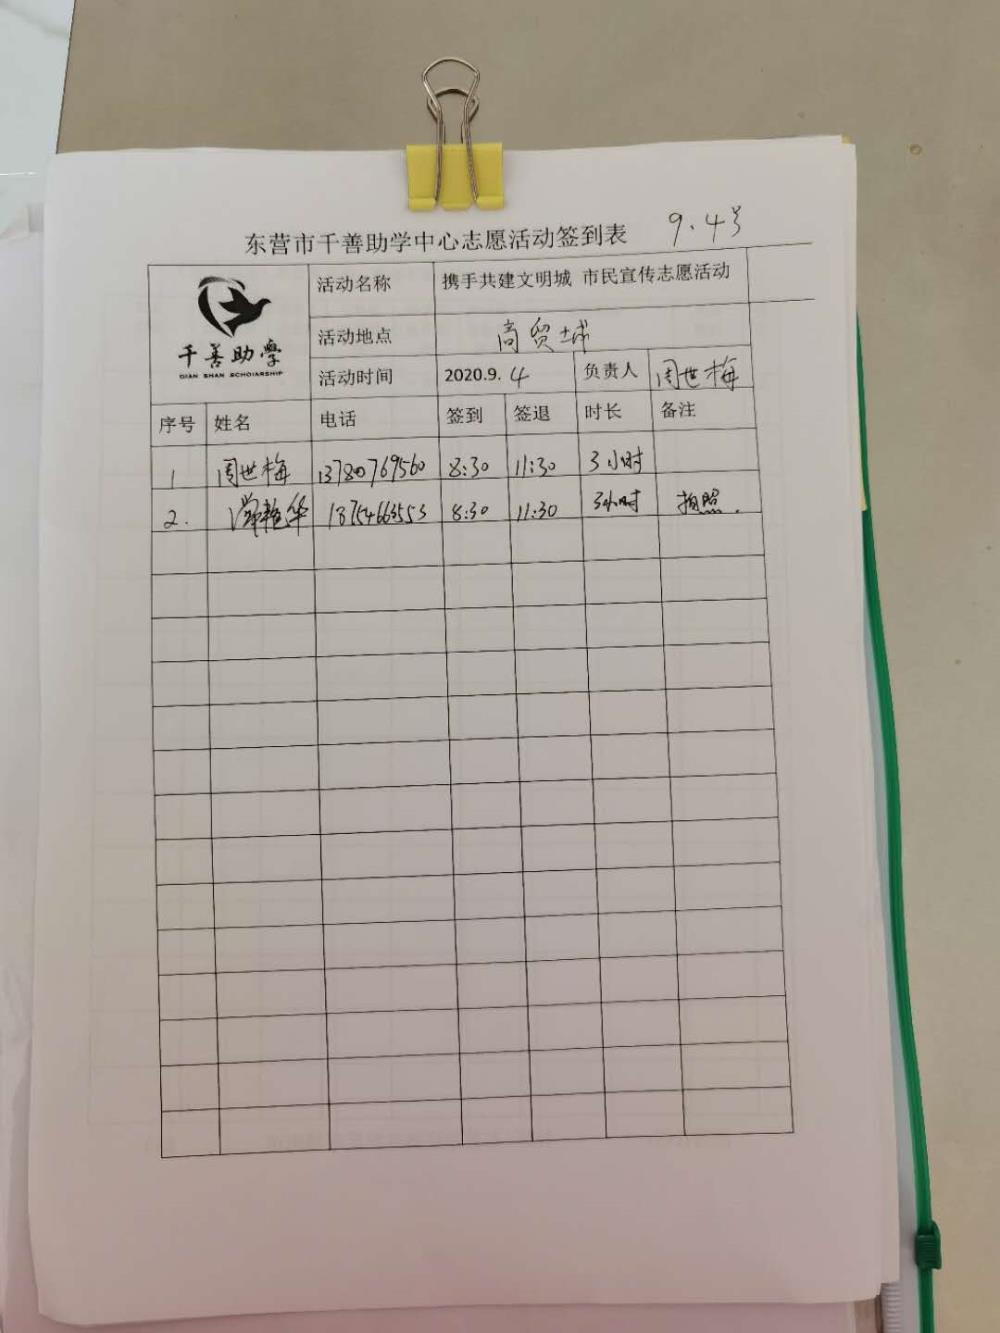 东营市千善助学中心志愿活动签到表 9.4号
千善助学
QIAN SHAN SCHOLARSHIP
活动名称 携手共建文明城 市民宣传志愿活动
活动地点 商贸城
活动时间 2020.9.4 负责人 周世梅
序号 姓名 电话 签到 签退 时长 备注
1 周世梅 13780769560 8:30 11:30 3小时
2. 8:30 11:30 3小时 拍照.